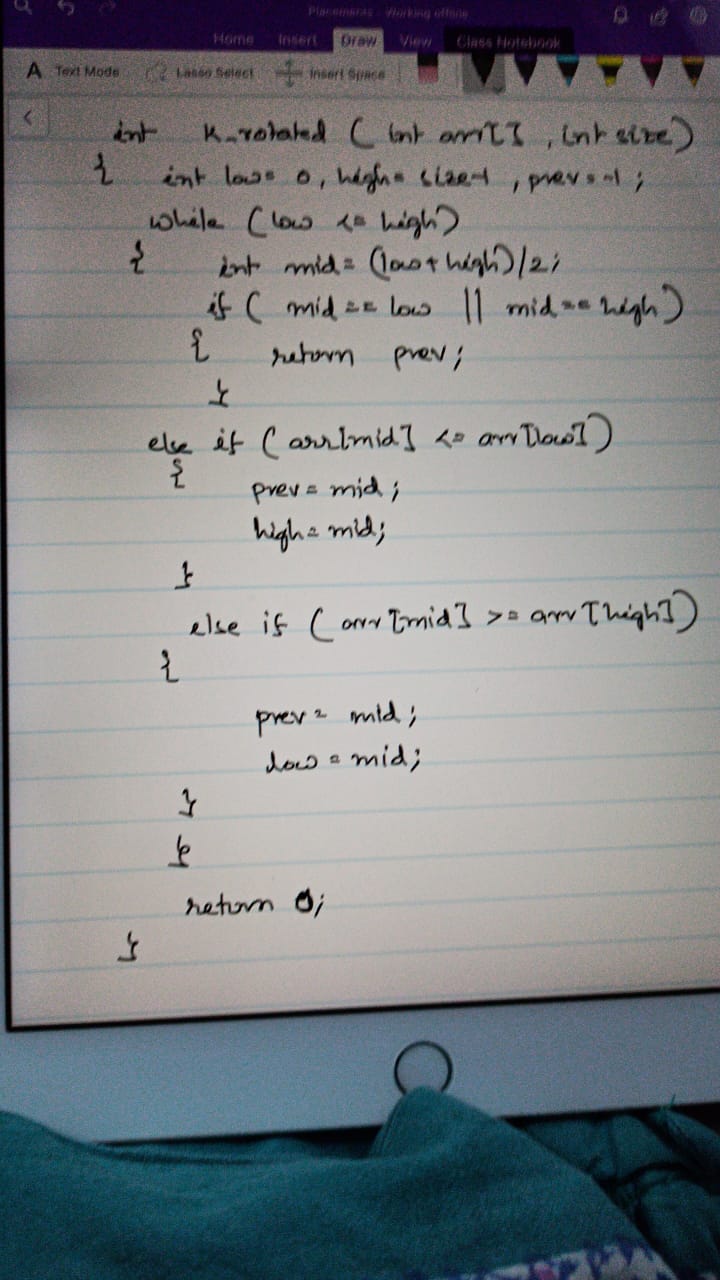 Placements - Working offline
Home Insert Draw View Class Notebook
A Text Mode Lasso Select Insert Space
int k_rotated ( int arr[] , int size)
{ int low= 0, high= size-1 , prev=-1 ;
while (low <= high)
{ int mid= (low+high)/2;
if ( mid == low || mid == high)
{ return prev;
}
else if (arr[mid] <= arr[low])
{
prev= mid ;
high= mid;
}
else if ( arr[mid] >= arr[high])
{
prev= mid ;
low = mid;
}
}
return 0;
}